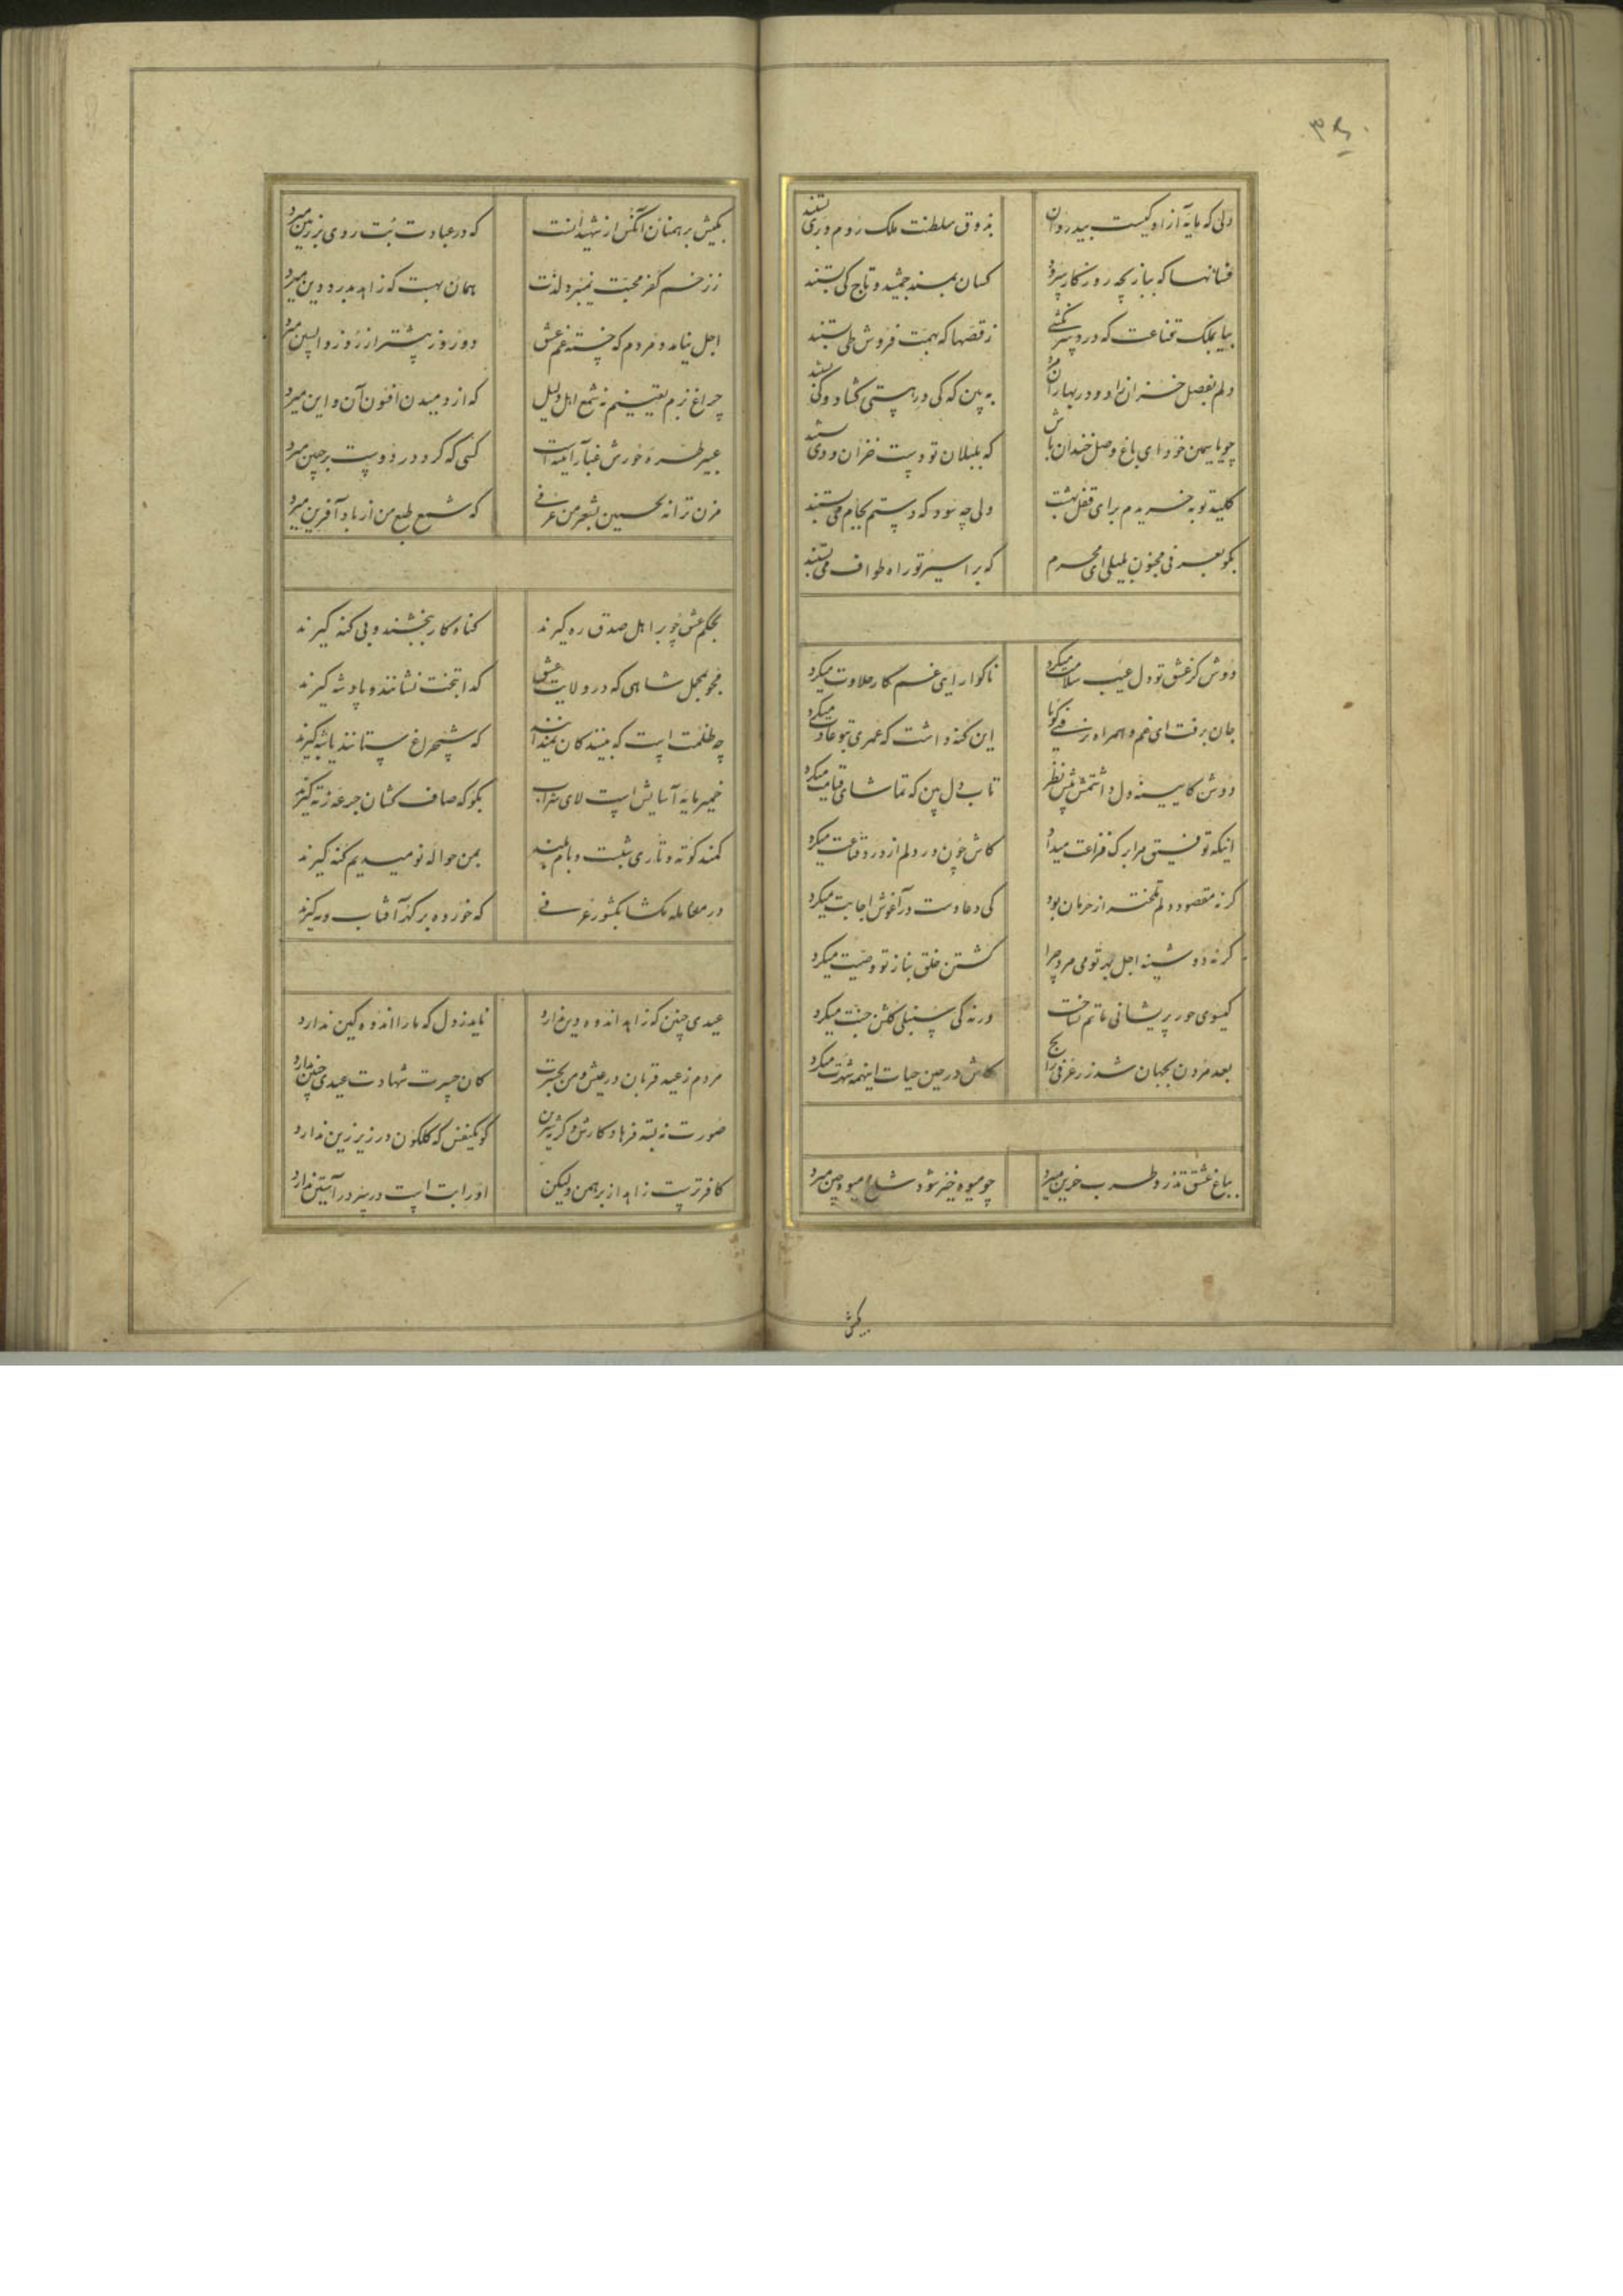 دلی که مایه آزادگیست بیدردان بذوق سلطنت ملک روم و ری بستند
فسانهاکه ببازیچه روزکار سرود کسان بمسند جمشید و تاج کی بستند
بیا بملک قناعت که دردسر نکشی زقصها که بهمت فروش طی بستند
دلم بفصل خزان زاد و در بهاران مرد به بین که کی در هستی کشاد و کی بستند
خندان باش که بلبلان تو دست خزان و دی بستند
کلید توبه خریدم برای قفل بهشت ولی چه سود که دستم بجام می بستند
بکو بعرفی مجنون لیلی ای محرم که بر اسیر تو راه طواف می بستند
دوش کز عشق تو دل عیب سلامت میکرد ناکوارای غم کار حلاوت میکرد
جان برفت ای غم و همراه نرفتی کویا این کنه داشت که عمری بتو عادت میکرد
دوش کایینه دل داشتمش پیش نظر تاب دل بین که تماشای قیامت میکرد
اینکه توفیق مرا برک فراغت میداد کاش خون در دلم از درد قناعت میکرد
کرنه مقصود دلم تخته از حرمان بود کی دعا دست در آغوش اجابت میکرد
کرنه دوشینه اجل بر تو می مرد چرا کشتن خلق بناز تو وصیت میکرد
کیسوی حور پریشانی ماتم نشناخت ورنه کی سنبلی کلشن جنت میکرد
بعد مردن بجهان شد ز عرفی رایج کاش در حین حیات اینهمه شهرت میکرد
بباغ عشق تذرو طرب حزین میرد چو میوه خیز شود شاخ میوه چین میرد
بکیش
بکیش برهمنان آنکس از شهیدانست که در عبادت بت روی بر زمین میرد
ز زخم کفر محبت نمیبرد لذت همان بهست که زاهد بدرد دین میرد
اجل نیامد و مردم که خسته غم عشق دو روز پیشتر از روز واپسین میرد
چراغ بزم یقینیم نه شمع اهل دلیل که از دمیدن افسون آن و این میرد
عبیر طره حورش غبار آینه است کسی که کرد در دوست بر جبین میرد
مزن ترانه تحسین بشعر من عرفی که شمع طبع من از باد آفرین میرد
بحکم عشق چو بر اهل صدق ره کیرند کناه کار ببخشند و بی کنه کیرند
مجو تجمل شاهی که در ولایت عشق کدا بتخت نشانند و پادشه کیرند
چه ظلمت است که بینندکان نمیدانند که شبچراغ ستانند یا شبه کیرند
خمیر مایه آسایش است لای شراب بکو که صاف کشان جرعه ز ته کیرند
کمند کوته و تاری شبست و بام بلند بمن حواله نومیدیم کنه کیرند
در معامله بکشا بکشور عرفی که خورده بر کذر آفتاب و مه کیرند
عیدی چنین که زاهد اندوه دین ندارد ناید ز دل که ما را اندوهکین ندارد
مردم ز عید قربان در عیش و من بحسرت کان حسرت شهادت عیدی چنین ندارد
صورت نبسته فرهاد کارش مکر که شیرین کو یکنفس که کلکون در زیر زین ندارد
کافرترست زاهد از برهمن ولیکن او را بت است در سر در آستین ندارد